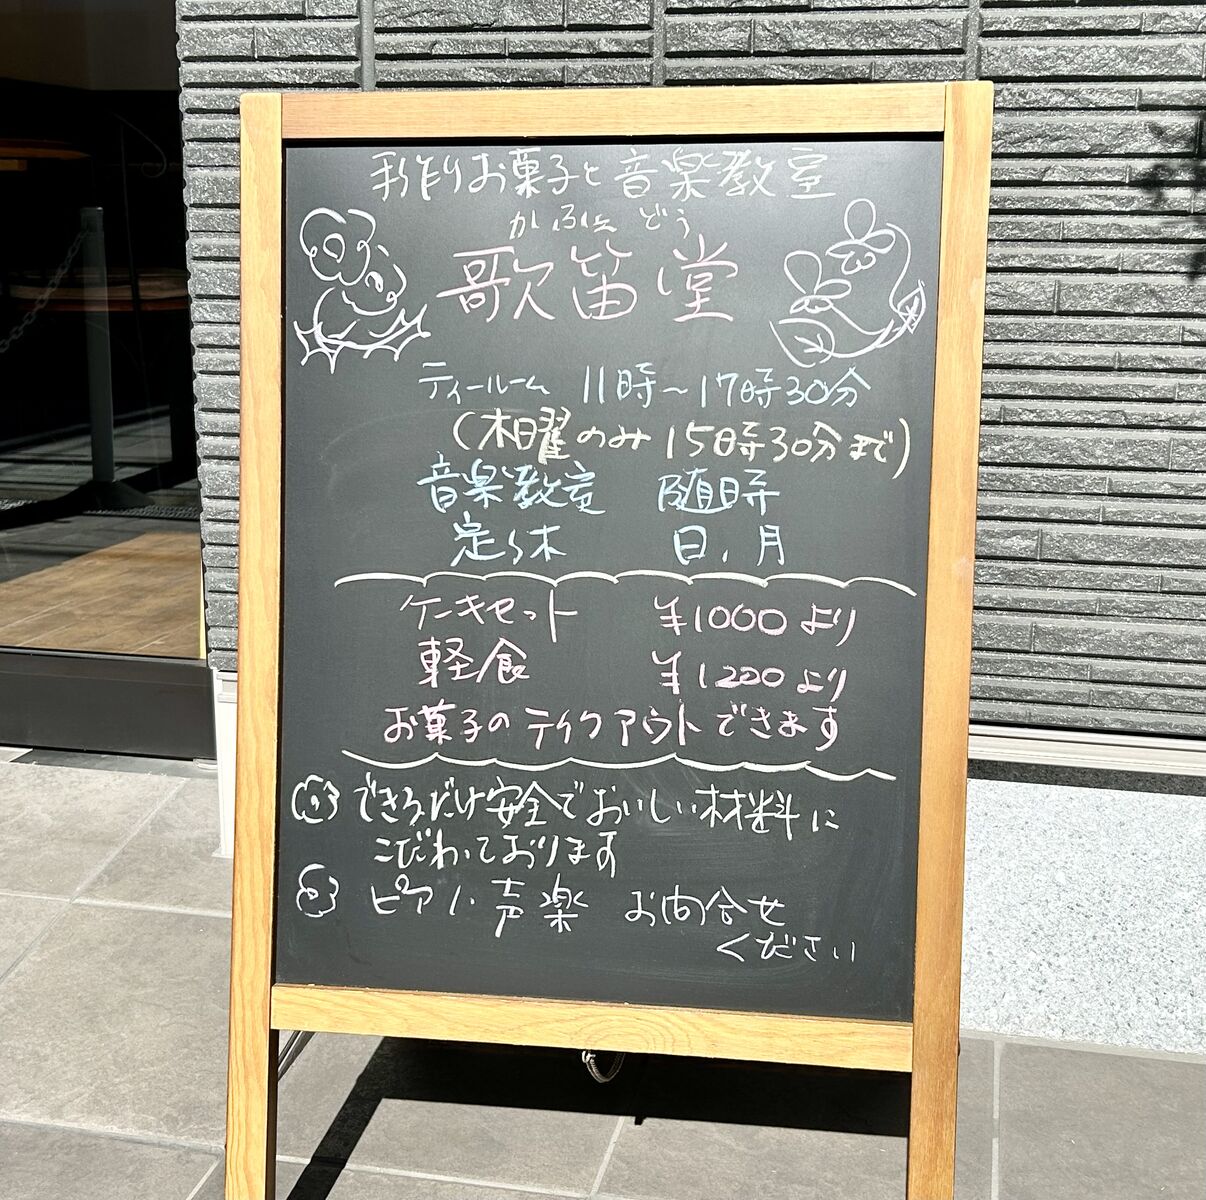 手作りお菓子と音楽教室
かふえ どう
歌笛堂
ティールーム 11時～17時30分
(木曜のみ15時30分まで)
音楽教室 随時
定休 日、月
ケーキセット ¥1000より
軽食 ¥1200より
お菓子のテイクアウトできます
できるだけ安全でおいしい材料に
こだわっております
ピアノ・声楽 お問合せ
ください